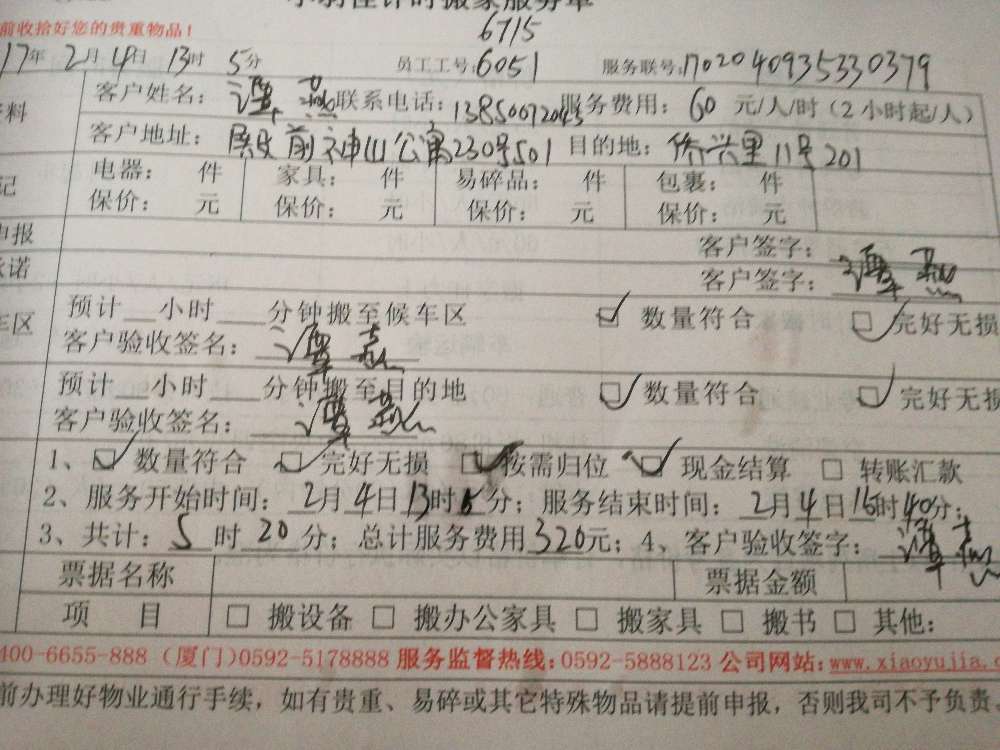 计时搬家服务单
前收拾好您的贵重物品！ 6715
17年 2月 4日 13时 5分 员工工号：6051 服务联号：1702040935330379
资料 客户姓名：谭 联系电话： 服务费用：60 元/人/时（2 小时起/人）
客户地址：殿前神山公寓230号501 目的地：侨兴里11号201
记 电器： 件 家具： 件 易碎品： 件 包裹： 件
保价： 元 保价： 元 保价： 元 保价： 元
申报 客户签字：
承诺 客户签字：谭
车区 预计__小时___分钟搬至候车区 ☑ 数量符合 ☑ 完好无损
客户验收签名：谭
预计__小时___分钟搬至目的地 ☑ 数量符合 ☑ 完好无损
客户验收签名：谭
1、☑ 数量符合 ☑ 完好无损 ☑ 按需归位 ☑ 现金结算 □ 转账汇款
2、服务开始时间：2月4日13时 分；服务结束时间：2月4日 时40分；
3、共计：5时20分；总计服务费用320元；4、客户验收签字：谭
票据名称 票据金额
项 目 □ 搬设备 □ 搬办公家具 □ 搬家具 □ 搬书 □ 其他：
400-6655-888（厦门）0592-5178888 服务监督热线：0592-5888123 公司网站：www.xiaoyujia.c
前办理好物业通行手续，如有贵重、易碎或其它特殊物品请提前申报，否则我司不予负责。